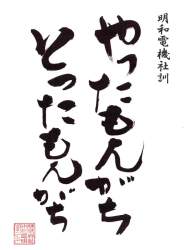 明和電機社訓
やったもんがち
とったもんがち